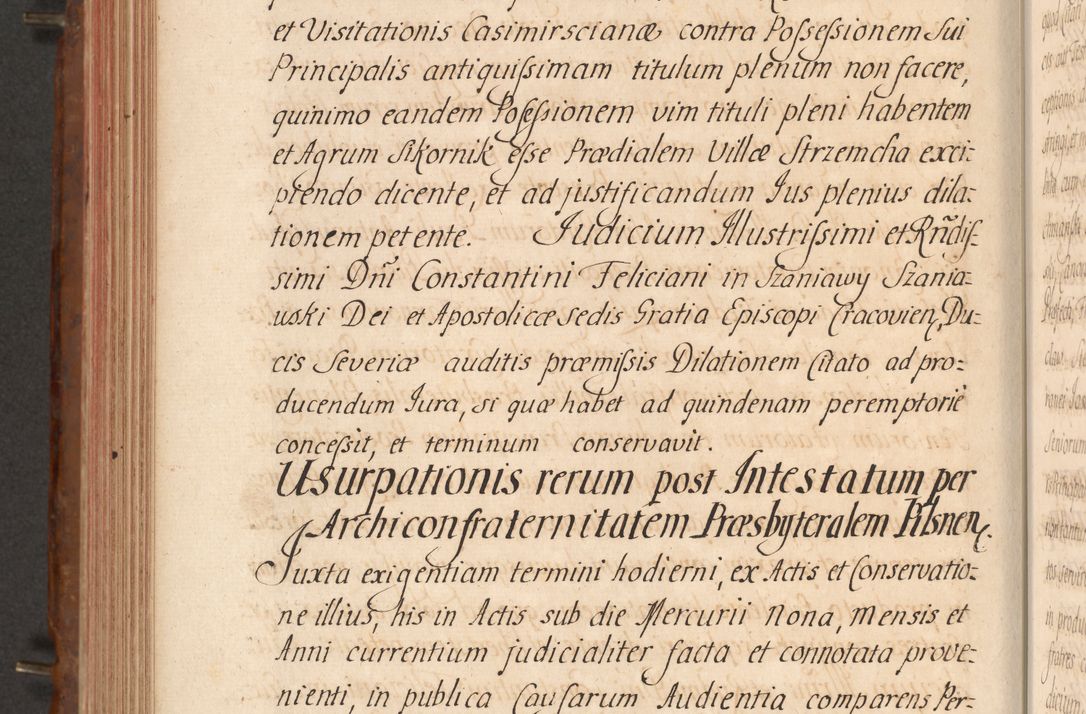 et Visitationis Casimirscianæ contra Possessionem Sui
Principalis antiquissimam titulum plenum non facere,
quinimo eandem Possessionem vim tituli pleni habentem
et Agrum Sikornik esse Prædialem Villæ Strzemcha exci:
piendo dicente, et ad justificandum Jus plenius dila:
tionem petente. Judicium Illustrissimi et Rñdis
simi Dñi Constantini Feliciani in Szaniawy Szania:
wski Dei et Apostolicæ Sedis Gratia Episcopi Cracovien, Du:
cis Severiæ auditis præmissis Dilationem Citato ad pro:
ducendum Jura, si quæ habet ad quindenam peremptorie
concessit, et terminum conservavit.
Usurpationis rerum post Intestatum per
Archiconfraternitatem Præsbyteralem Pilsnen.
Juxta exigentiam termini hodierni, ex Actis et Conservatio:
ne illius, his in Actis sub die Mercurii Nona, Mensis et
Anni currentium judicialiter facta et connotata prove:
nienti, in publica Causarum Audientia comparens Per-